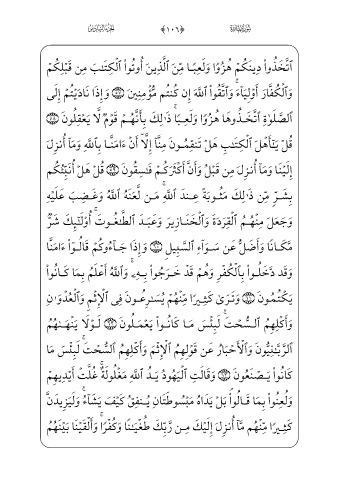 سورة المائدة ﴿١٠٦﴾ الجزء السادس
ٱتَّخَذُوا۟ دِينَكُمْ هُزُوًا وَلَعِبًا مِّنَ ٱلَّذِينَ أُوتُوا۟ ٱلْكِتَـٰبَ مِن قَبْلِكُمْ
وَٱلْكُفَّارَ أَوْلِيَآءَ ۚ وَٱتَّقُوا۟ ٱللَّهَ إِن كُنتُم مُّؤْمِنِينَ ۝٥٧ وَإِذَا نَادَيْتُمْ إِلَى
ٱلصَّلَوٰةِ ٱتَّخَذُوهَا هُزُوًا وَلَعِبًا ۚ ذَٰلِكَ بِأَنَّهُمْ قَوْمٌ لَّا يَعْقِلُونَ ۝٥٨
قُلْ يَـٰٓأَهْلَ ٱلْكِتَـٰبِ هَلْ تَنقِمُونَ مِنَّآ إِلَّآ أَنْ ءَامَنَّا بِٱللَّهِ وَمَآ أُنزِلَ
إِلَيْنَا وَمَآ أُنزِلَ مِن قَبْلُ وَأَنَّ أَكْثَرَكُمْ فَـٰسِقُونَ ۝٥٩ قُلْ هَلْ أُنَبِّئُكُم
بِشَرٍّ مِّن ذَٰلِكَ مَثُوبَةً عِندَ ٱللَّهِ ۚ مَن لَّعَنَهُ ٱللَّهُ وَغَضِبَ عَلَيْهِ
وَجَعَلَ مِنْهُمُ ٱلْقِرَدَةَ وَٱلْخَنَازِيرَ وَعَبَدَ ٱلطَّـٰغُوتَ ۚ أُو۟لَـٰٓئِكَ شَرٌّ
مَّكَانًا وَأَضَلُّ عَن سَوَآءِ ٱلسَّبِيلِ ۝٦٠ وَإِذَا جَآءُوكُمْ قَالُوٓا۟ ءَامَنَّا
وَقَد دَّخَلُوا۟ بِٱلْكُفْرِ وَهُمْ قَدْ خَرَجُوا۟ بِهِۦ ۚ وَٱللَّهُ أَعْلَمُ بِمَا كَانُوا۟
يَكْتُمُونَ ۝٦١ وَتَرَىٰ كَثِيرًا مِّنْهُمْ يُسَـٰرِعُونَ فِى ٱلْإِثْمِ وَٱلْعُدْوَٰنِ
وَأَكْلِهِمُ ٱلسُّحْتَ ۚ لَبِئْسَ مَا كَانُوا۟ يَعْمَلُونَ ۝٦٢ لَوْلَا يَنْهَىٰهُمُ
ٱلرَّبَّـٰنِيُّونَ وَٱلْأَحْبَارُ عَن قَوْلِهِمُ ٱلْإِثْمَ وَأَكْلِهِمُ ٱلسُّحْتَ ۚ لَبِئْسَ مَا
كَانُوا۟ يَصْنَعُونَ ۝٦٣ وَقَالَتِ ٱلْيَهُودُ يَدُ ٱللَّهِ مَغْلُولَةٌ ۚ غُلَّتْ أَيْدِيهِمْ
وَلُعِنُوا۟ بِمَا قَالُوا۟ ۘ بَلْ يَدَاهُ مَبْسُوطَتَانِ يُنفِقُ كَيْفَ يَشَآءُ ۚ وَلَيَزِيدَنَّ
كَثِيرًا مِّنْهُم مَّآ أُنزِلَ إِلَيْكَ مِن رَّبِّكَ طُغْيَـٰنًا وَكُفْرًا ۚ وَأَلْقَيْنَا بَيْنَهُمُ